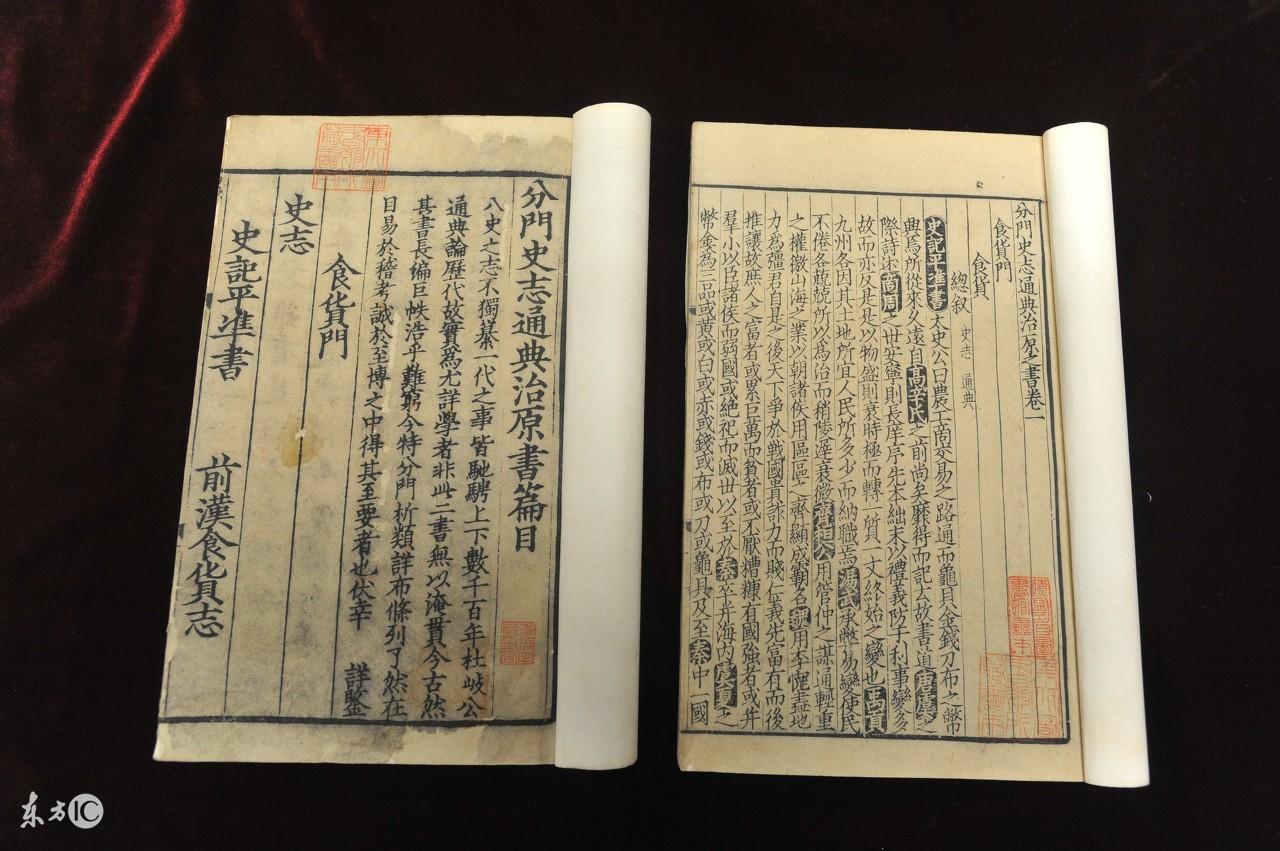 分門史志通典治原書篇目
八史之志不獨纂一代之事皆馳騁上下數千百年杜岐公
通典論歷代故實爲尤詳學者非此二書無以淹貫今古然
其書長編巨帙浩乎難窮今特分門析類詳布條列了然在
目易於稽考誠於至博之中得其至要者也伏幸 詳鑒
食貨門
史志
史記平準書 前漢食貨志
分門史志通典治原之書卷一
食貨門
食貨
總叙 史志 通典
史記平準書太史公曰農工商交易之路通而龜貝金錢刀布之幣
興焉所從來久遠自高辛氏之前尚矣靡得而記云故書道唐虞之
際詩述商周之世安寧則長庠序先本絀末以禮義防于利事變多
故而亦反是是以物盛則衰時極而轉一質一文終始之變也禹貢
九州各因其土地所宜人民所多少而納職焉湯武承弊易變使民
不倦各兢兢所以爲治而稍陵遲衰微齊桓公用管仲之謀通輕重
之權徼山海之業以朝諸侯用區區之齊顯成霸名魏用李悝盡地
力爲彊君自是之後天下爭於戰國貴詐力而賤仁義先富有而後
推讓故庶人之富者或累巨萬而貧者或不厭糟糠有國強者或并
羣小以臣諸侯而弱國或絶祀而滅世以至於秦卒并海内虞夏之
幣金爲三品或黄或白或赤或錢或布或刀或龜貝及至秦中一國
东方IC